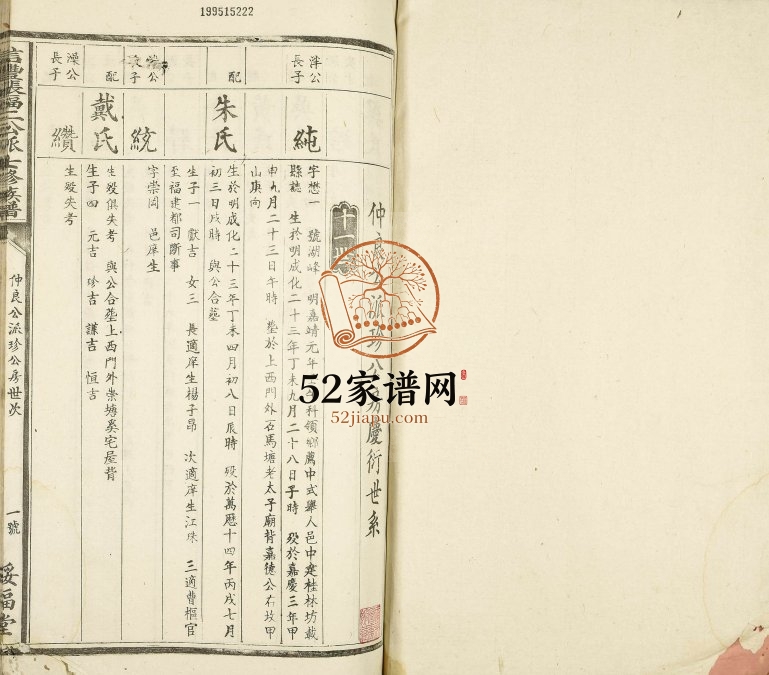 199515222
仲良 派珍公房慶衍世系
十一世
洋公長子
純
字懋一 號湖峰 明嘉靖元年 科領鄉薦中式舉人邑中建桂林坊載
縣誌 生於明成化二十三年丁未九月二十八日子時 歿於嘉慶三年甲
申九月二十三日午時 塟於上西門外石馬塘老太子廟背嘉德公右坟甲
山庚向
配
朱氏
生於明成化二十三年丁未四月初八日辰時 歿於萬曆十四年丙戌七月
初三日戌時 與公合塟
生子一 獻吉 女三 長適庠生楊子昂 次適庠生江珠 三適曹樞官
至福建都司斷事
次子
統
字崇岡 邑庠生
配
戴氏
生歿俱失考 與公合塟上西門外崇塘奚宅屋背
生子四 元吉 珍吉 謙吉 恒吉
澡公長子
纘
生歿失考
信豐張福二公派七修族譜
仲良公派珍公房世次
一號
綏福堂
52家谱网
52jiapu.com